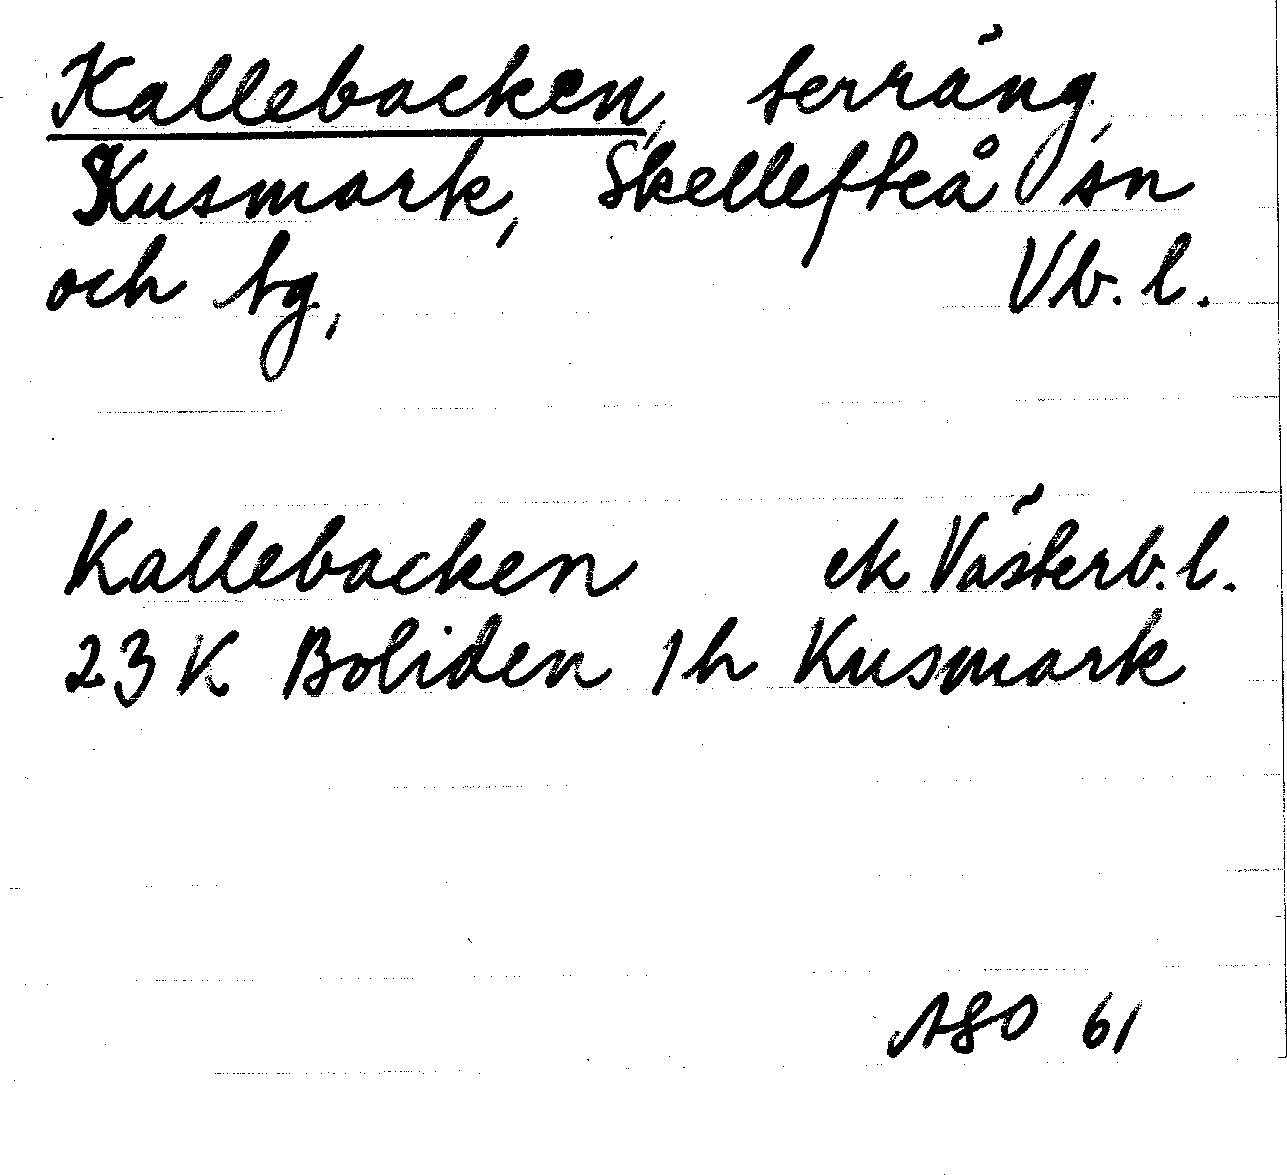 Kallebacken, terräng,
Kusmark, Skellefteå sn
och tg, Vb. l.
Kallebacken ek Västerb. l.
23 K Boliden 1 h Kusmark
ASO 61